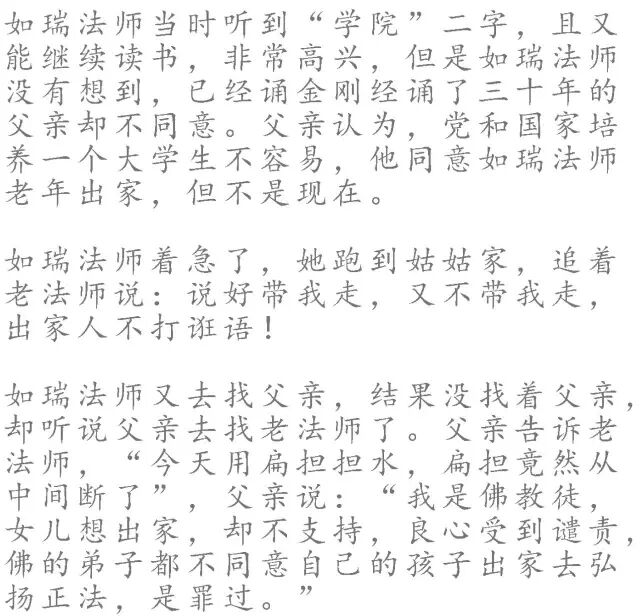 如瑞法师当时听到“学院”二字，且又
能继续读书，非常高兴，但是如瑞法师
没有想到，已经诵金刚经诵了三十年的
父亲却不同意。父亲认为，党和国家培
养一个大学生不容易，他同意如瑞法师
老年出家，但不是现在。
如瑞法师着急了，她跑到姑姑家，追着
老法师说：说好带我走，又不带我走，
出家人不打诳语！
如瑞法师又去找父亲，结果没找着父亲，
却听说父亲去找老法师了。父亲告诉老
法师，“今天用扁担担水，扁担竟然从
中间断了”，父亲说：“我是佛教徒，
女儿想出家，却不支持，良心受到谴责，
佛的弟子都不同意自己的孩子出家去弘
扬正法，是罪过。”